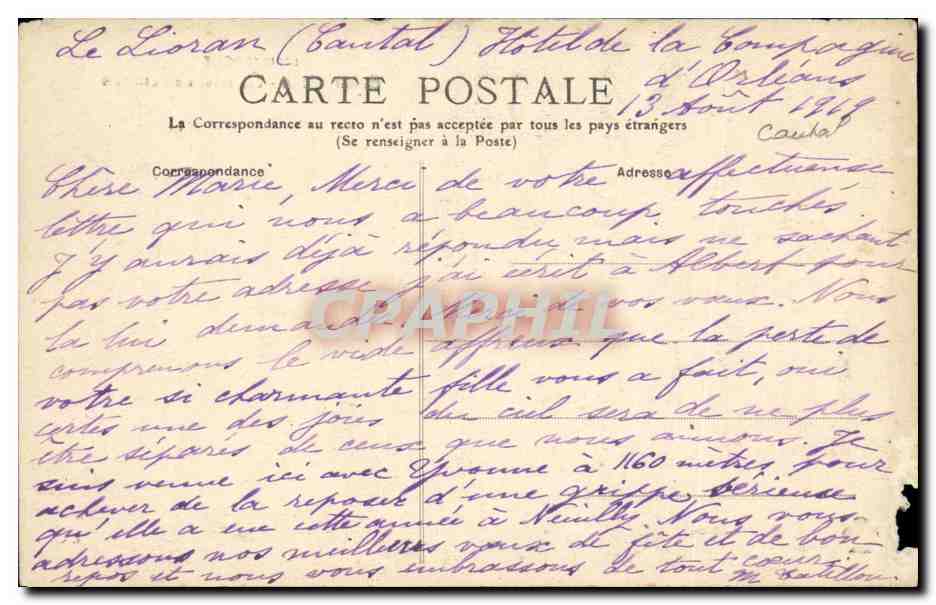 Le Lioran (Cantal) Hôtel de la Compagnie
d'Orléans
CARTE POSTALE
13 Août 1919
La Correspondance au recto n'est pas acceptée par tous les pays étrangers
Cantal
(Se renseigner à la Poste)
Correspondance
Adresse
Chère Marie, Merci de votre affectueuse
lettre qui nous a beaucoup touchés.
J'y aurais déjà répondu, mais ne sachant
pas votre adresse j'ai écrit à Albert pour
la lui demander. Merci de vos vœux. Nous
comprenons le vide affreux que la perte de
votre si charmante fille vous a fait, oui
certes une des joies du ciel sera de ne plus
être séparés de ceux que nous aimons. Je
suis venue ici avec Yvonne à 1160 mètres, pour
achever de la reposer d'une grippe sérieuse
qu'elle a eue cette année à Neuilly. Nous vous
adressons nos meilleurs vœux de fête et de bon
repos et nous vous embrassons de tout cœur.
CPARHIL